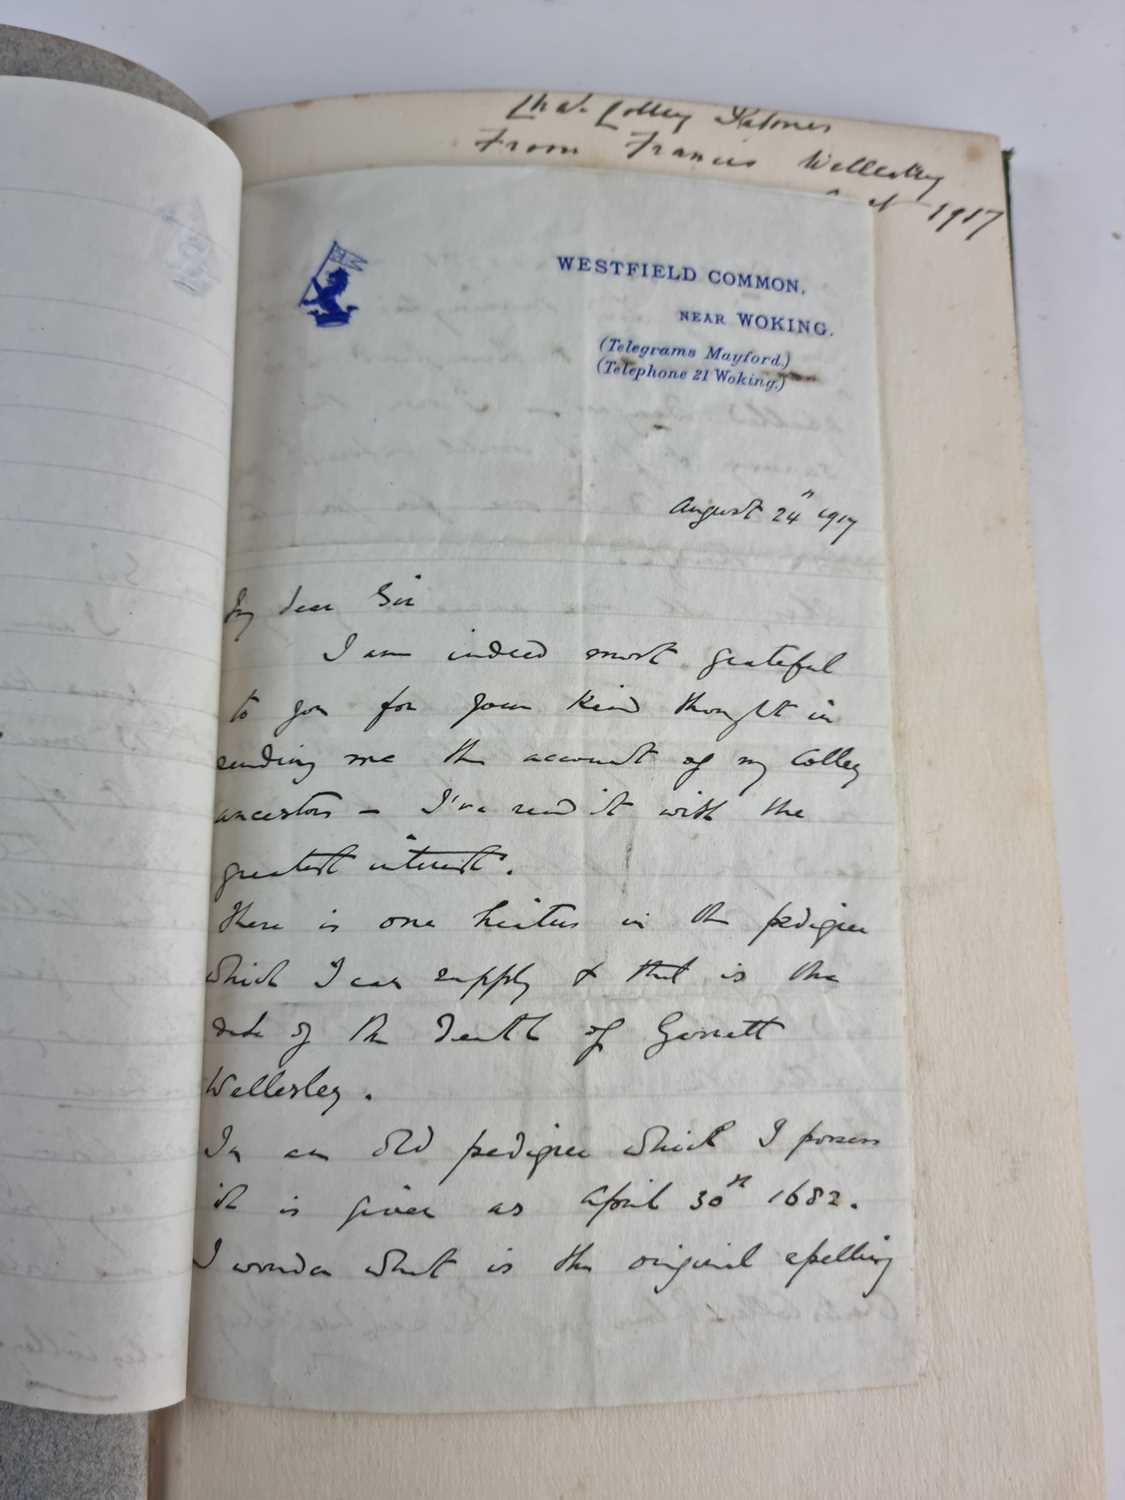 Chas. Colley Palmer
From Francis Wellesley
1917
WESTFIELD COMMON,
NEAR WOKING.
(Telegrams Mayford.)
(Telephone 21 Woking.)
August 24th 1917
My dear Sir
I am indeed most grateful
to you for your kind thought in
sending me the account of my Colley
ancestors – I've read it with the
greatest interest.
There is one hiatus in the pedigree
which I can supply & that is the
date of the death of Garrett
Wellesley.
In an old pedigree which I possess
it is given as April 30th 1682.
I wonder what is the original spelling